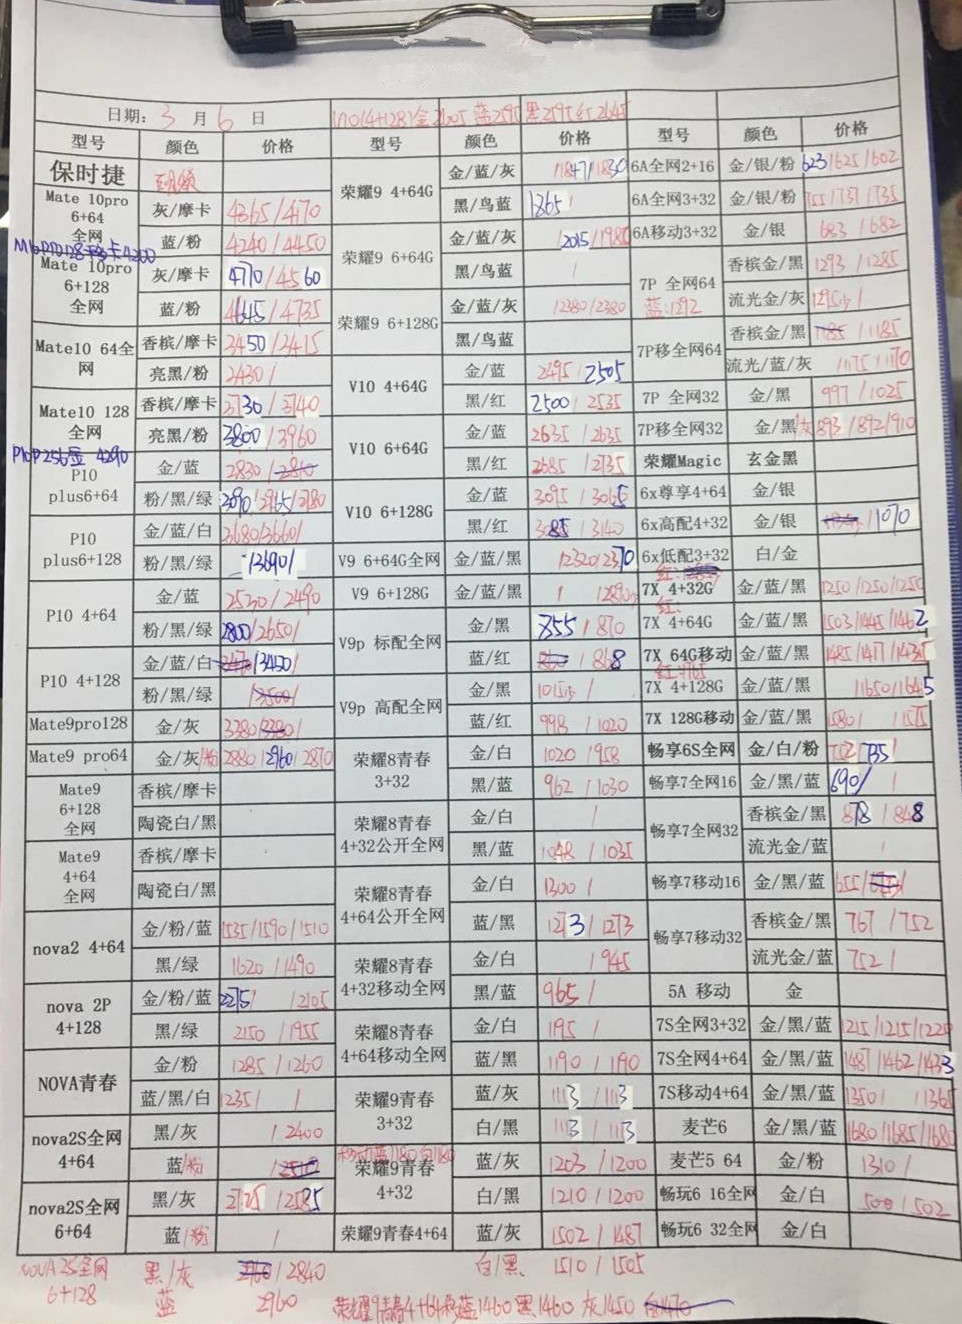 日期: 3 月 6 日
型号 颜色 价格 型号 颜色 价格 型号 颜色 价格
保时捷 荣耀9 4+64G 金/蓝/灰 6A全网2+16 金/银/粉 623/1625/1602
Mate 10pro 6+64 全网 灰/摩卡 4365/4170 黑/鸟蓝 1865/ 6A全网3+32 金/银/粉
蓝/粉 4240/4450 荣耀9 6+64G 金/蓝/灰 6A移动3+32 金/银 683/682
Mate 10pro 6+128 全网 灰/摩卡 4770/4560 黑/鸟蓝 / 7P 全网64 香槟金/黑 1293/1285
蓝/粉 4645/4735 荣耀9 6+128G 金/蓝/灰 /2380/2380 蓝:1292 流光金/灰
Mate10 64全网 香槟/摩卡 3450/3415 黑/鸟蓝 7P移全网64 香槟金/黑 /1185
亮黑/粉 3430/ V10 4+64G 金/蓝 2495/2505 流光/蓝/灰 1175/1170
Mate10 128 全网 香槟/摩卡 3730/3740 黑/红 2500/2535 7P 全网32 金/黑 997/1025
亮黑/粉 3800/3960 V10 6+64G 金/蓝 2635/2635 7P移全网32 金/黑/灰 893/892/910
P10P256金 4290
P10 plus6+64 金/蓝 2830/ 黑/红 2685/2735 荣耀Magic 玄金黑
粉/黑/绿 V10 6+128G 金/蓝 3095/3065 6x尊享4+64 金/银
P10 plus6+128 金/蓝/白 3680/3660/ 黑/红 3085/3140 6x高配4+32 金/银 /1070
粉/黑/绿 /3690/ V9 6+64G全网 金/蓝/黑 /2320/2370 6x低配3+32 白/金
P10 4+64 金/蓝 2530/2490 V9 6+128G 金/蓝/黑 红: 7X 4+32G 金/蓝/黑 1250/1250/1250
粉/黑/绿 2800/2650/ V9p 标配全网 金/黑 855/870 红: 7X 4+64G 金/蓝/黑 1503/1445/1462
P10 4+128 金/蓝/白 /3450/ 蓝/红 /868 7X 64G移动 金/蓝/黑
粉/黑/绿 V9p 高配全网 金/黑 7X 4+128G 金/蓝/黑 /1650/1645
Mate9pro128 金/灰 3380/ 蓝/红 998/1020 7X 128G移动 金/蓝/黑 1580/ /1575
Mate9 pro64 金/灰/粉 2880/2960/2870 荣耀8青春 3+32 金/白 1020/958 畅享6S全网 金/白/粉
Mate9 6+128 全网 香槟/摩卡 黑/蓝 962/1030 畅享7全网16 金/黑/蓝 690/ /
陶瓷白/黑 荣耀8青春 4+32公开全网 金/白 / 畅享7全网32 香槟金/黑 878/848
Mate9 4+64 全网 香槟/摩卡 黑/蓝 1048/1035 流光金/蓝 /
陶瓷白/黑 荣耀8青春 4+64公开全网 金/白 1300/ 畅享7移动16 金/黑/蓝 655/
nova2 4+64 金/粉/蓝 1535/1590/1510 蓝/黑 1273/1273 畅享7移动32 香槟金/黑 767/752
黑/绿 1620/1490 荣耀8青春 4+32移动全网 金/白 /945 流光金/蓝 752/
nova 2P 4+128 金/粉/蓝 2275/ /2105 黑/蓝 965/ 5A 移动 金
黑/绿 2150/1955 荣耀8青春 4+64移动全网 金/白 1195/ 7S全网3+32 金/黑/蓝 1215/1215/1220
NOVA青春 金/粉 1285/1260 蓝/黑 1190/1190 7S全网4+64 金/黑/蓝 1487/1462/1433
蓝/黑/白 1235/ / 荣耀9青春 3+32 蓝/灰 1113/1113 7S移动4+64 金/黑/蓝 1350/ /1365
nova2S全网 4+64 黑/灰 /2400 白/黑 1113/1113 麦芒6 金/黑/蓝 1680/1685/1680
蓝/粉 移动蓝1180白1180 荣耀9青春 4+32 蓝/灰 1203/1200 麦芒5 64 金/粉 1310/
nova2S全网 6+64 黑/灰 2725/2585 白/黑 1210/1200 畅玩6 16全网 金/白 500/502
蓝/粉 / 荣耀9青春4+64 蓝/灰 1502/1487 畅玩6 32全网 金/白
NOVA 2S全网 6+128 黑/灰 /2840 白/黑 1510/1505
蓝 2960 荣耀9青春4+64移蓝1460 黑1460 灰1450